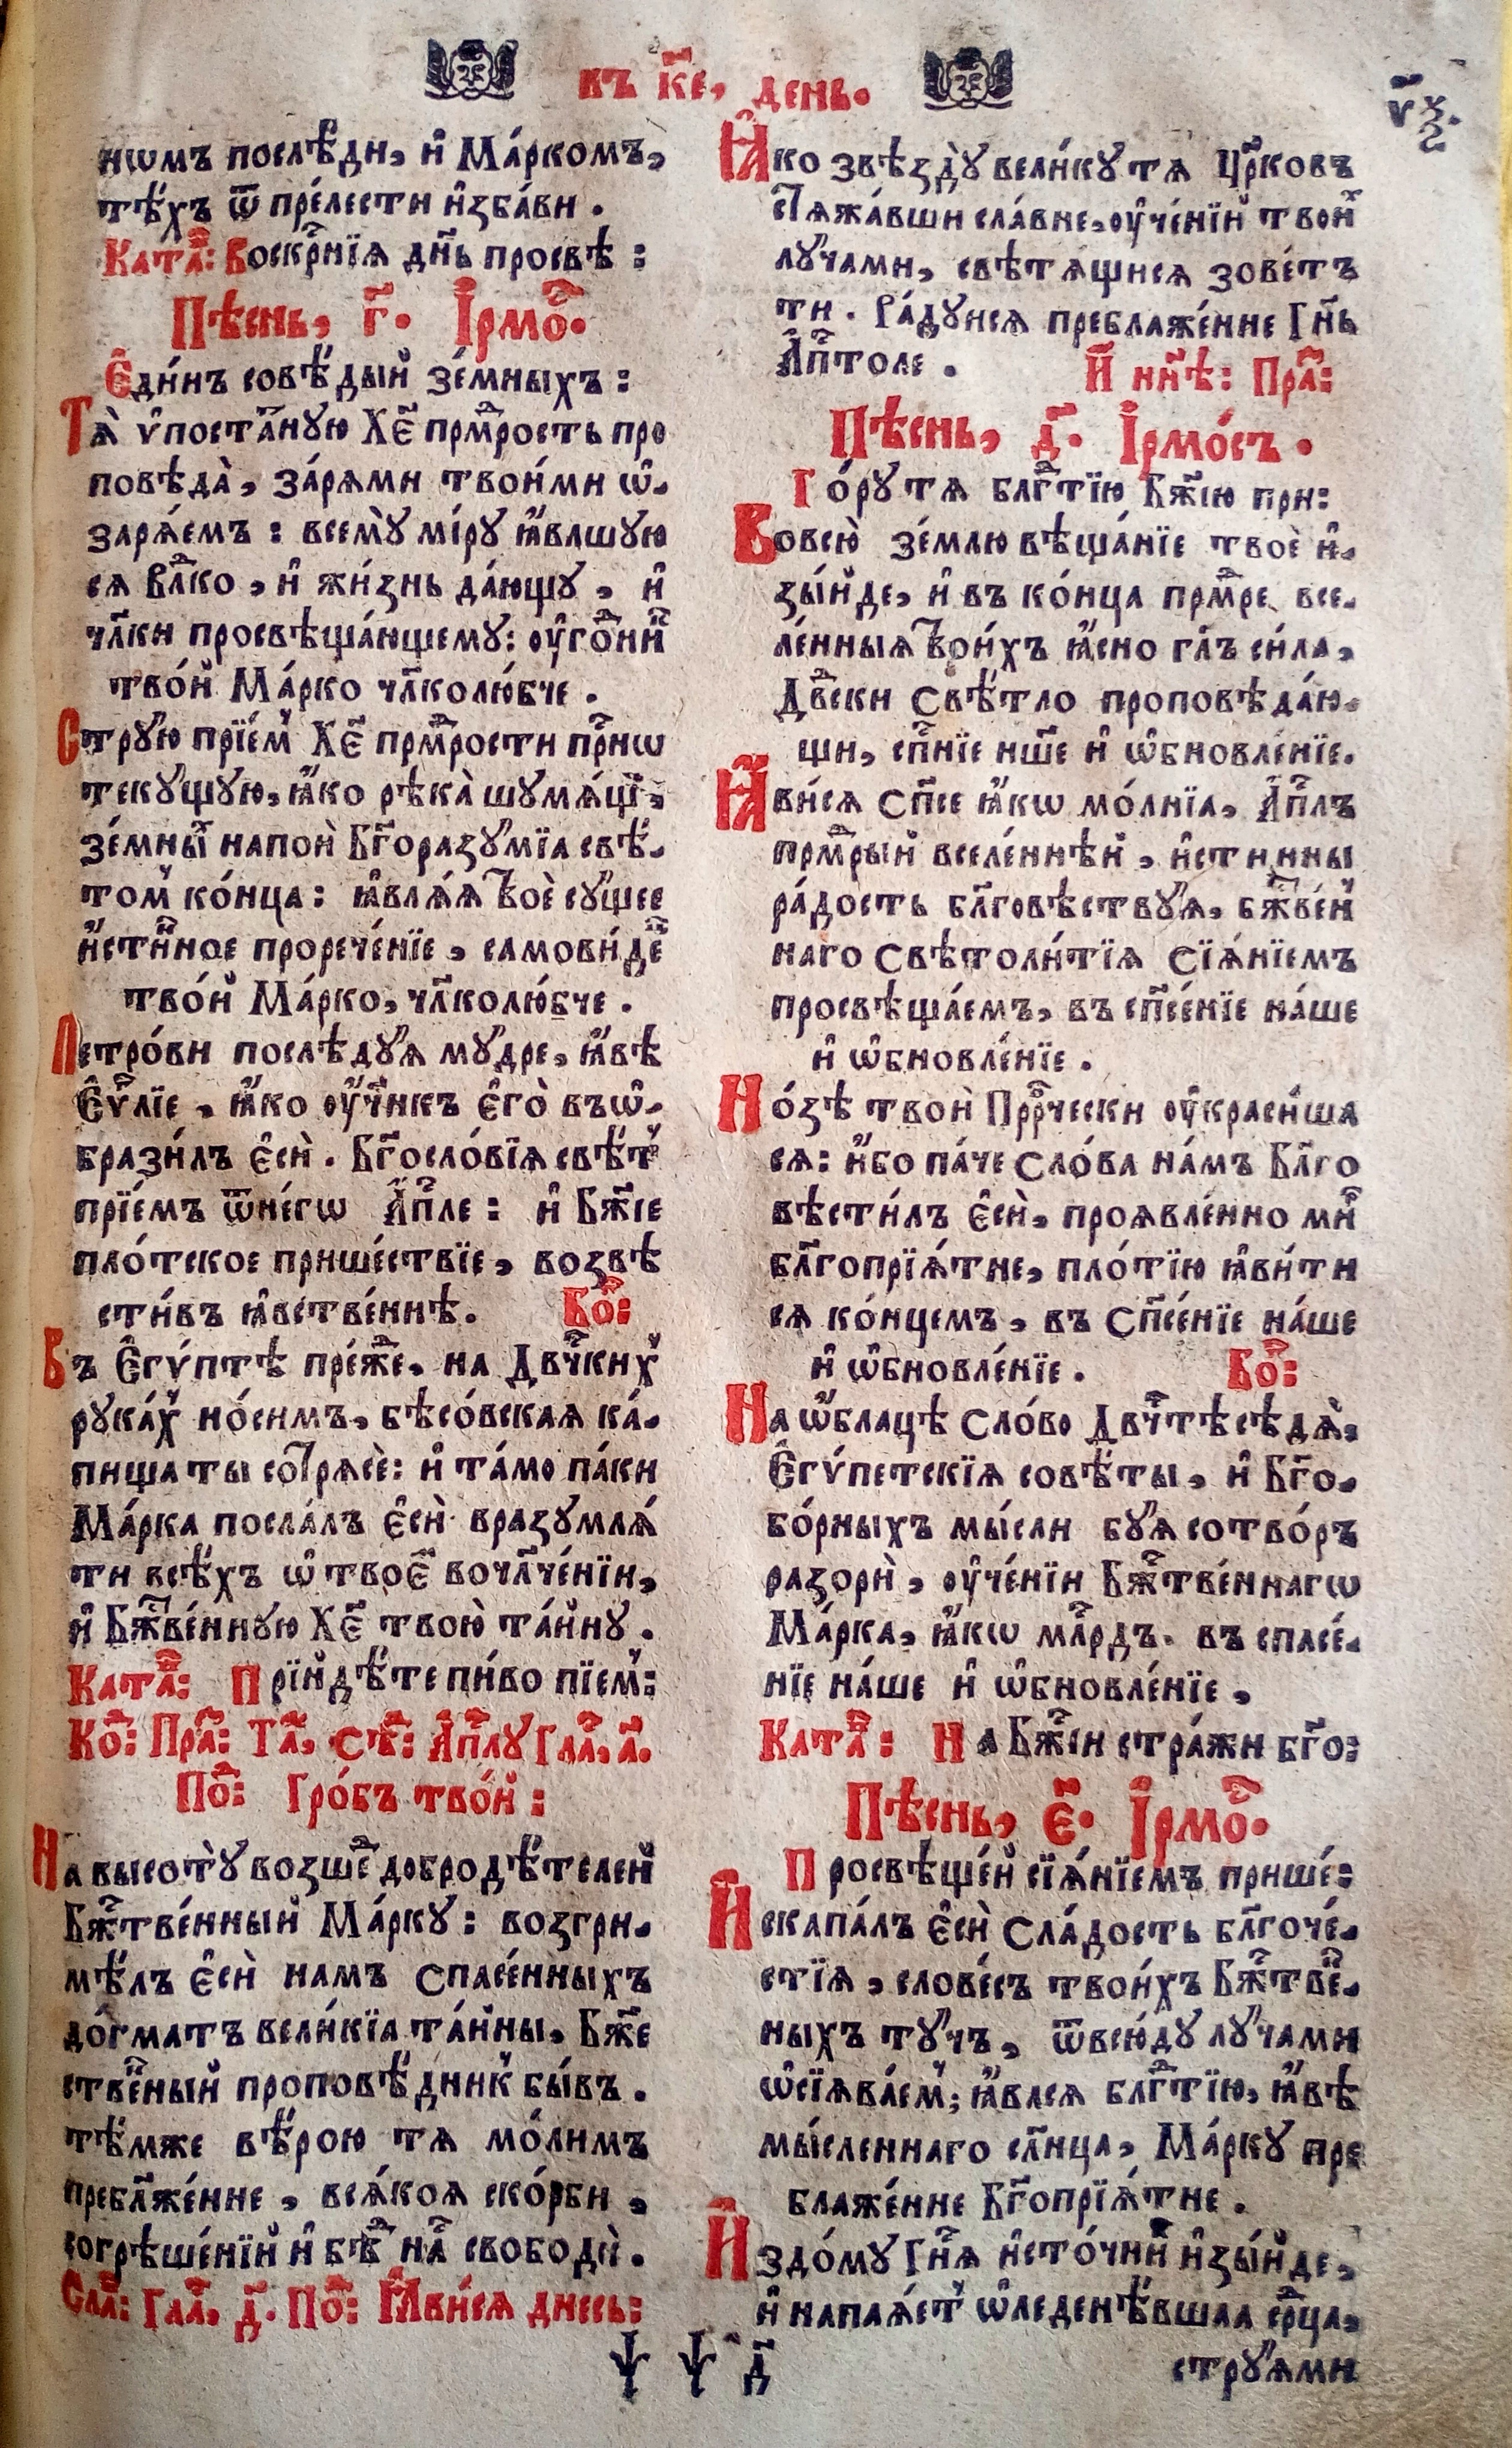 въ к҃е, день.
ѵ҃ѯ.
нѡмъ послѣ́дн, и҆ Ма́ркомъ,
тѣ́хъ ѿ пре́лести и҆зба́ви .
Ката҃в: Воскр҃нїѧ дн҃ь просвѣ :
Пѣснь, г҃. І҆рмо҃с.
Є҆ди́нъ совѣ́дый зе́мныхъ :
Тѧ̀ ѵ҆поста́ную Хе҃ прм҃рость про
повѣда̀, зарѧ́ми твои́ми ѡ҆-
зарѧ́емъ : всемꙋ̀ мі́рꙋ ꙗ҆́влшꙋю
сѧ влⷣко , и҆ жи́знь даю́щꙋ , и҆
чл҃ки просвѣща́ющемꙋ: оу҆го́дни
тво́й Ма́рко чл҃колю́бче .
Стрꙋю̀ прїе́м Хе҃ прм҃рости при́снѡ
текꙋ́щꙋю, ꙗ҆́ко рѣка̀ шꙋмѧ́щ,
зе́мны напоѝ Бг҃оразꙋ́мїа свѣ́-
том ко́нца : ꙗ҆влѧ́ѧ твоѐ сꙋ́щее
и҆́стинное прорече́нїе , самови́де
тво́й Ма́рко, чл҃колю́бче .
Петро́ви послѣ́дꙋѧ мꙋ́дре, ꙗ҆́вѣ
Є҆ѵ҃лїе , ꙗ҆́ко оу҆чн҃къ є҆го̀ въѡ҆-
брази́лъ є҆сѝ . Бг҃осло́вїѧ свѣ́т
прїе́мъ ѿне́гѡ А҆п҃ле : и҆ Бж҃їе
пло́тское прише́ствїе , возвѣ
сти́въ ꙗ҆́вственнѣ. Бо҃:
Въ Є҆гѵ́птѣ пре́жде, на Дв҃чкихъ
рꙋка́хъ но́симъ, бѣсо́вскаѧ ка́-
пища ты сотрѧсѐ: и҆ та́мо па́ки
Ма́рка посла́лъ є҆сѝ вразꙋмлѧ́
ти всѣ́хъ ѡ҆ твое҃ вочл҃че́нїи,
и҆ Бж҃ве́ннꙋю Хе҃ твою̀ та́йнꙋ .
Ката҃в: Прїидѣ́те пи́во пїем:
Ко҃: Пра҃: Та҃, Свѣ҃: А҆п҃лꙋ Гла҃, а҃.
По҃: Гро́бъ тво́й :
На высотꙋ̀ возше́ добродѣ́телей
Бж҃тве́нный Ма́ркꙋ : возгри-
мѣ́лъ є҆сѝ намъ спасе́нныхъ
до́гматъ вели́кїа та́йны, Бж҃е
стве́ный проповѣ́дник бы́въ .
тѣ́мже вѣ́рою тѧ мо́лимъ
пребл҃же́нне , всѧ́коѧ ско́рби ,
согрѣше́нїй и҆ бѣ́д на́с свободѝ .
Сла҃: Гла҃, д҃. По҃: Ꙗ҆ви́сѧ днесь:
Ꙗ҆́ко звѣздꙋ̀ вели́кꙋ тѧ Цр҃ковъ
стѧжа́вши сла́вне, оу҆че́нїй твои́
лꙋ́чами, свѣтѧщисѧ зове́тъ
ти . Ра́дꙋйсѧ преблаже́нне Гн҃ь
А҆п҃толе . И҆ нн҃ѣ : Пра҃:
Пѣснь, д҃. І҆рмо́съ .
Го́рꙋ тѧ блг҃тїю Бж҃їю при :
Во всю̀ зе́млю вѣща́нїе твоѐ и҆-
зы́йде, и҆ въ ко́нца прм҃ре все-
ле́нныѧ твои́хъ ꙗ҆́сно гл҃ъ си́ла,
Дв҃ски Свѣ́тло проповѣ́даю-
щи, сп҃нїе нш҃е и҆ ѡ҆бновле́нїе.
Ꙗ҆ви́сѧ Сп҃се ꙗ҆́кѡ мо́лнїа, А҆п҃лъ
прм҃рый вселе́ннѣй , и҆́стинны
ра́дость бл҃говѣствꙋ́ѧ, бж҃ве́н
наго Свѣтоли́тїѧ Сїѧ́нїемъ
просвѣща́емъ, въ сп҃се́нїе на́ше
и҆ ѡ҆бновле́нїе .
Но́зѣ твоѝ Прр҃чески оу҆краси́ша
сѧ : и҆́бо па́че Сло́ва на́мъ Бл҃го
вѣсти́лъ є҆сѝ, проѧвле́нно ми́
бл҃гопрїѧ́тне, пло́тїю ꙗ҆ви́ти
сѧ ко́нцемъ , въ Сп҃се́нїе на́ше
и҆ ѡ҆бновле́нїе . Бо҃:
На ѡ҆́блацѣ Сло́во Дв҃чтѣ сѣдѧ̀,
Є҆гѵ́петскїѧ совѣ́ты , и҆ Бг҃о-
бо́рныхъ мы́сли бꙋ́ѧ сотво́рь
разорѝ , оу҆че́нїи Бж҃тве́ннагѡ
Ма́рка, ꙗ҆́кѡ мл҃рдъ. въ спасе́-
нїе на́ше и҆ ѡ҆бновле́нїе ,
Ката҃в : На Бж҃їи стра́жи бг҃о :
Пѣснь, е҃. І҆рмо҃с.
Просвѣще́й сїѧ́нїемъ прише́ :
И҆скапа́лъ є҆сѝ Сла́дость бл҃гоче́-
стїѧ , слове́съ твои́хъ Бж҃тве-
ныхъ тꙋ́чъ , ѿвсю́дꙋ лꙋ́чами
ѡ҆сїѧва́ем; ꙗ҆́влсѧ блг҃тїю, ꙗ҆́вѣ
мы́сленнаго сл҃нца, Ма́ркꙋ пре
блаже́нне Бг҃опрїѧ́тне .
И҆з до́мꙋ Гн҃ѧ и҆сто́чни и҆зы́йде,
и҆ напаѧ́ет ѡ҆леденѣ́вшаа ср҃ца,
ѱ ѱ д҃
стрꙋѧ́ми